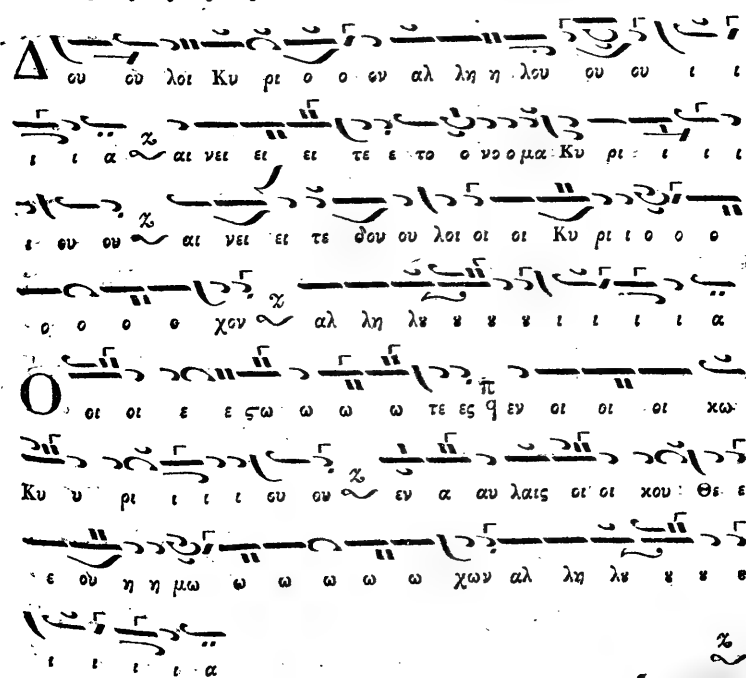 Δ ου ου λοι Κυ ρι ο ο ον αλ λη η λου ου ου ι ι
ι ι α αι νει ει ει τε ε το ο νο ο μα Κυ ρι ι ι ι
ι ου ου αι νει ει τε δου ου λοι οι οι Κυ ρι ι ο ο ο
ο ο ο ο χον αλ λη λȣ ȣ ȣ ȣ ι ι ι ι α
Ο οι οι ε ε ϛω ω ω ω τε ες π q εν οι οι οι κω
Κυ υ ρι ι ι ι ου ου εν α αυ λαις οι οι κου Θε ε
ε ου η η μω ω ω ω ω ω χων αλ λη λȣ ȣ ȣ ȣ
ι ι ι ι α